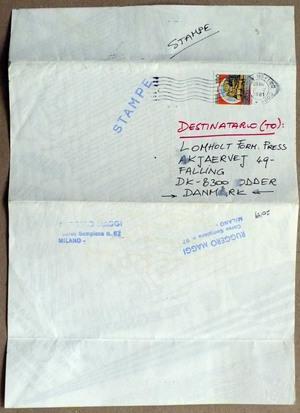 STAMPE
STAMPE
DESTINATARIO (TO):
LOMHOLT FORM. PRESS
AKJAERVEJ 49-
FALLING
DK-8300 ODDER
→ DANMARK ←
RUGGERO MAGGI
Corso Sempione n. 67
MILANO -
MAGGI
Corso Sempione n. 67
MILANO -